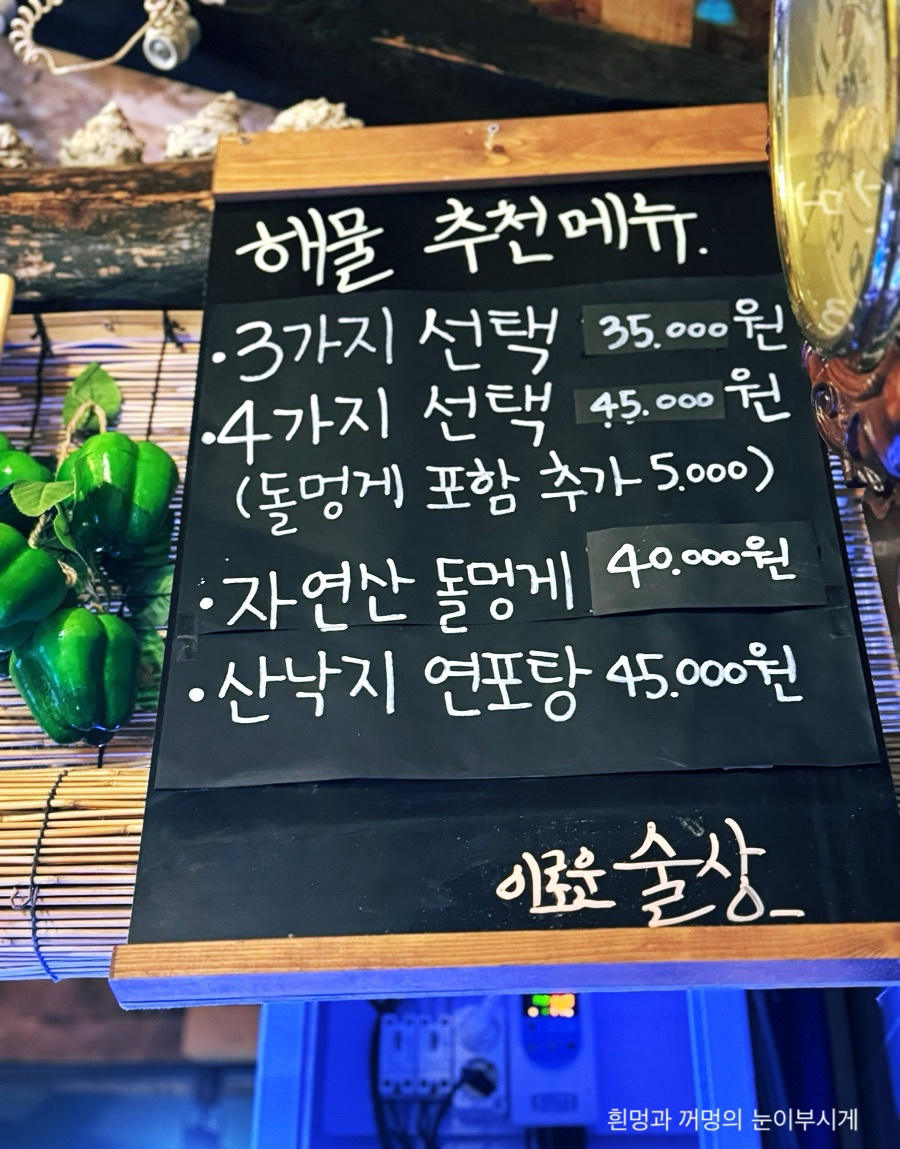 해물 추천메뉴.
·3가지 선택 35.000원
·4가지 선택 45.000원
(돌멍게 포함 추가 5.000)
·자연산 돌멍게 40.000원
·산낙지 연포탕 45.000원
이로운 술상_
흰멍과 꺼멍의 눈이부시게